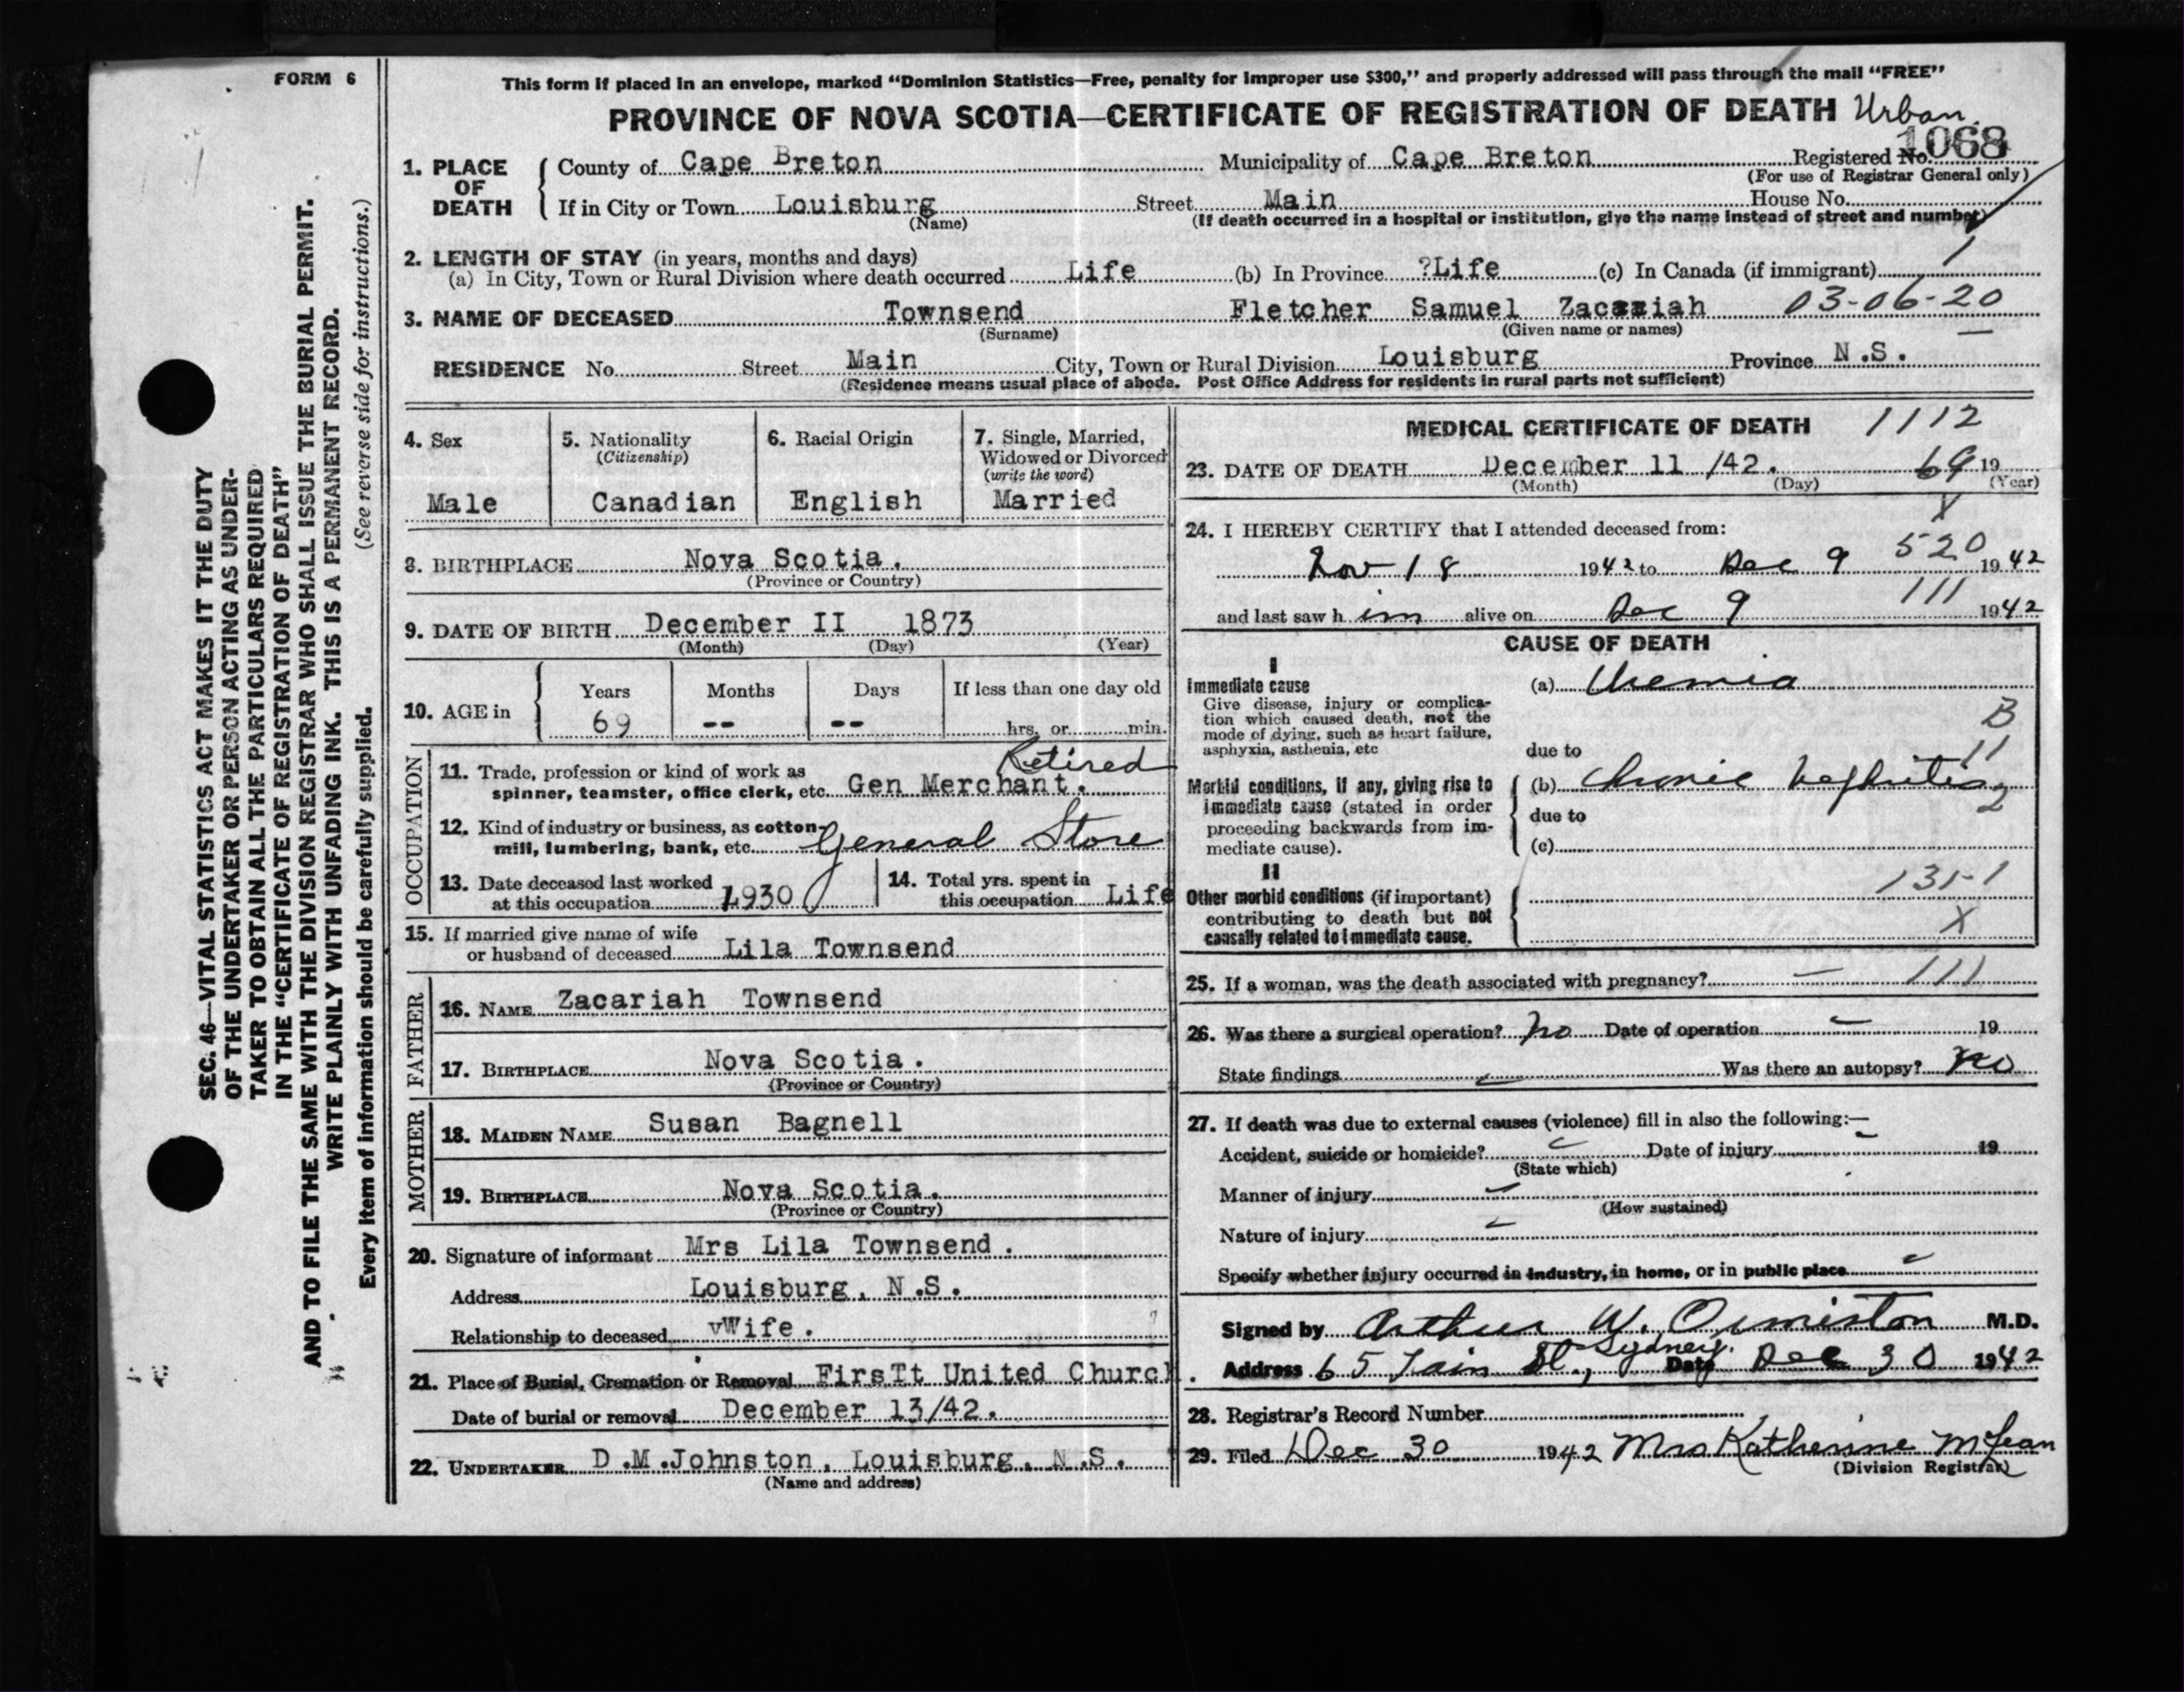 FORM 6
This form if placed in an envelope, marked “Dominion Statistics—Free, penalty for improper use $300,” and properly addressed will pass through the mail “FREE”
PROVINCE OF NOVA SCOTIA—CERTIFICATE OF REGISTRATION OF DEATH Urban
1. PLACE OF DEATH
County of Cape Breton Municipality of Cape Breton Registered No. 1068
(For use of Registrar General only)
If in City or Town Louisburg Street Main House No.
(Name) (If death occurred in a hospital or institution, give the name instead of street and number)
2. LENGTH OF STAY (in years, months and days)
(a) In City, Town or Rural Division where death occurred Life (b) In Province ?Life (c) In Canada (if immigrant) 1
3. NAME OF DECEASED Townsend Fletcher Samuel Zacaziah 03-06-20
(Surname) (Given name or names)
RESIDENCE No. Street Main City, Town or Rural Division Louisburg Province N.S.
(Residence means usual place of abode. Post Office Address for residents in rural parts not sufficient)
4. Sex
Male
5. Nationality
(Citizenship)
Canadian
6. Racial Origin
English
7. Single, Married,
Widowed or Divorced
(write the word)
Married
8. BIRTHPLACE Nova Scotia.
(Province or Country)
9. DATE OF BIRTH December II 1873
(Month) (Day) (Year)
10. AGE in
Years Months Days If less than one day old
69 -- -- hrs. or min.
OCCUPATION
Retired
11. Trade, profession or kind of work as
spinner, teamster, office clerk, etc. Gen Merchant.
12. Kind of industry or business, as cotton-
mill, lumbering, bank, etc. General Store
13. Date deceased last worked
at this occupation 1930
14. Total yrs. spent in
this occupation Life
15. If married give name of wife
or husband of deceased Lila Townsend
FATHER
16. NAME Zacariah Townsend
17. BIRTHPLACE Nova Scotia.
(Province or Country)
MOTHER
18. MAIDEN NAME Susan Bagnell
19. BIRTHPLACE Nova Scotia.
(Province or Country)
20. Signature of informant Mrs Lila Townsend.
Address Louisburg, N.S.
Relationship to deceased vWife.
21. Place of Burial, Cremation or Removal FirsTt United Church.
Date of burial or removal December 13/42.
22. UNDERTAKER D.M.Johnston, Louisburg, N.S.
(Name and address)
MEDICAL CERTIFICATE OF DEATH 1112
23. DATE OF DEATH December 11 /42. 69 19
(Month) (Day) (Year)
X
24. I HEREBY CERTIFY that I attended deceased from:
520
Nov 18 1942 to Dec 9 1942
111
and last saw h im alive on Dec 9 1942
CAUSE OF DEATH
I
Immediate cause
Give disease, injury or complica-
tion which caused death, not the
mode of dying, such as heart failure,
asphyxia, asthenia, etc
(a) Uremia
B
due to
11
Morbid conditions, if any, giving rise to
immediate cause (stated in order
proceeding backwards from im-
mediate cause).
(b) Chronic Nephritis
2
due to
(c)
II
Other morbid conditions (if important)
contributing to death but not
causally related to immediate cause.
131-1
X
25. If a woman, was the death associated with pregnancy? — 111
26. Was there a surgical operation? No Date of operation — 19
State findings Was there an autopsy? No
27. If death was due to external causes (violence) fill in also the following:—
Accident, suicide or homicide? Date of injury 19
(State which)
Manner of injury
(How sustained)
Nature of injury
Specify whether injury occurred in industry, in home, or in public place
Signed by Arthur W. Ormiston M.D.
Sydney.
Address 65 St., Date Dec 30 1942
28. Registrar's Record Number
29. Filed Dec 30 1942 Mrs Katherine McLean
(Division Registrar)
SEC. 46—VITAL STATISTICS ACT MAKES IT THE DUTY
OF THE UNDERTAKER OR PERSON ACTING AS UNDER-
TAKER TO OBTAIN ALL THE PARTICULARS REQUIRED
IN THE “CERTIFICATE OF REGISTRATION OF DEATH”
AND TO FILE THE SAME WITH THE DIVISION REGISTRAR WHO SHALL ISSUE THE BURIAL PERMIT.
WRITE PLAINLY WITH UNFADING INK. THIS IS A PERMANENT RECORD.
Every item of information should be carefully supplied. (See reverse side for instructions.)